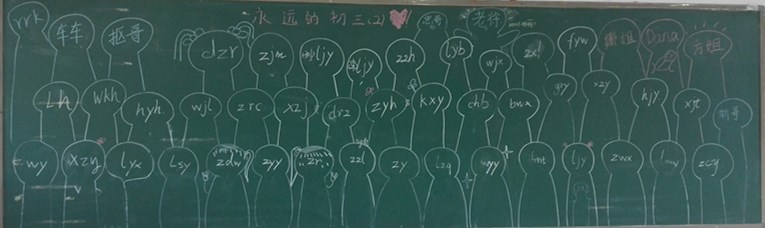 永远的初三(2)
rrk 车车 抠哥 dzr zjm ljy ljy zzh lyb wjx zxl fyw Dana 方姐
Lh wkh hyh wjl zrc xzj drz zyh kxy chb bwx xzy hjy xjt
zwy xzy lyx Lsy zdw zyy zr zzl zy Lzq wyy ljy zwx zcy